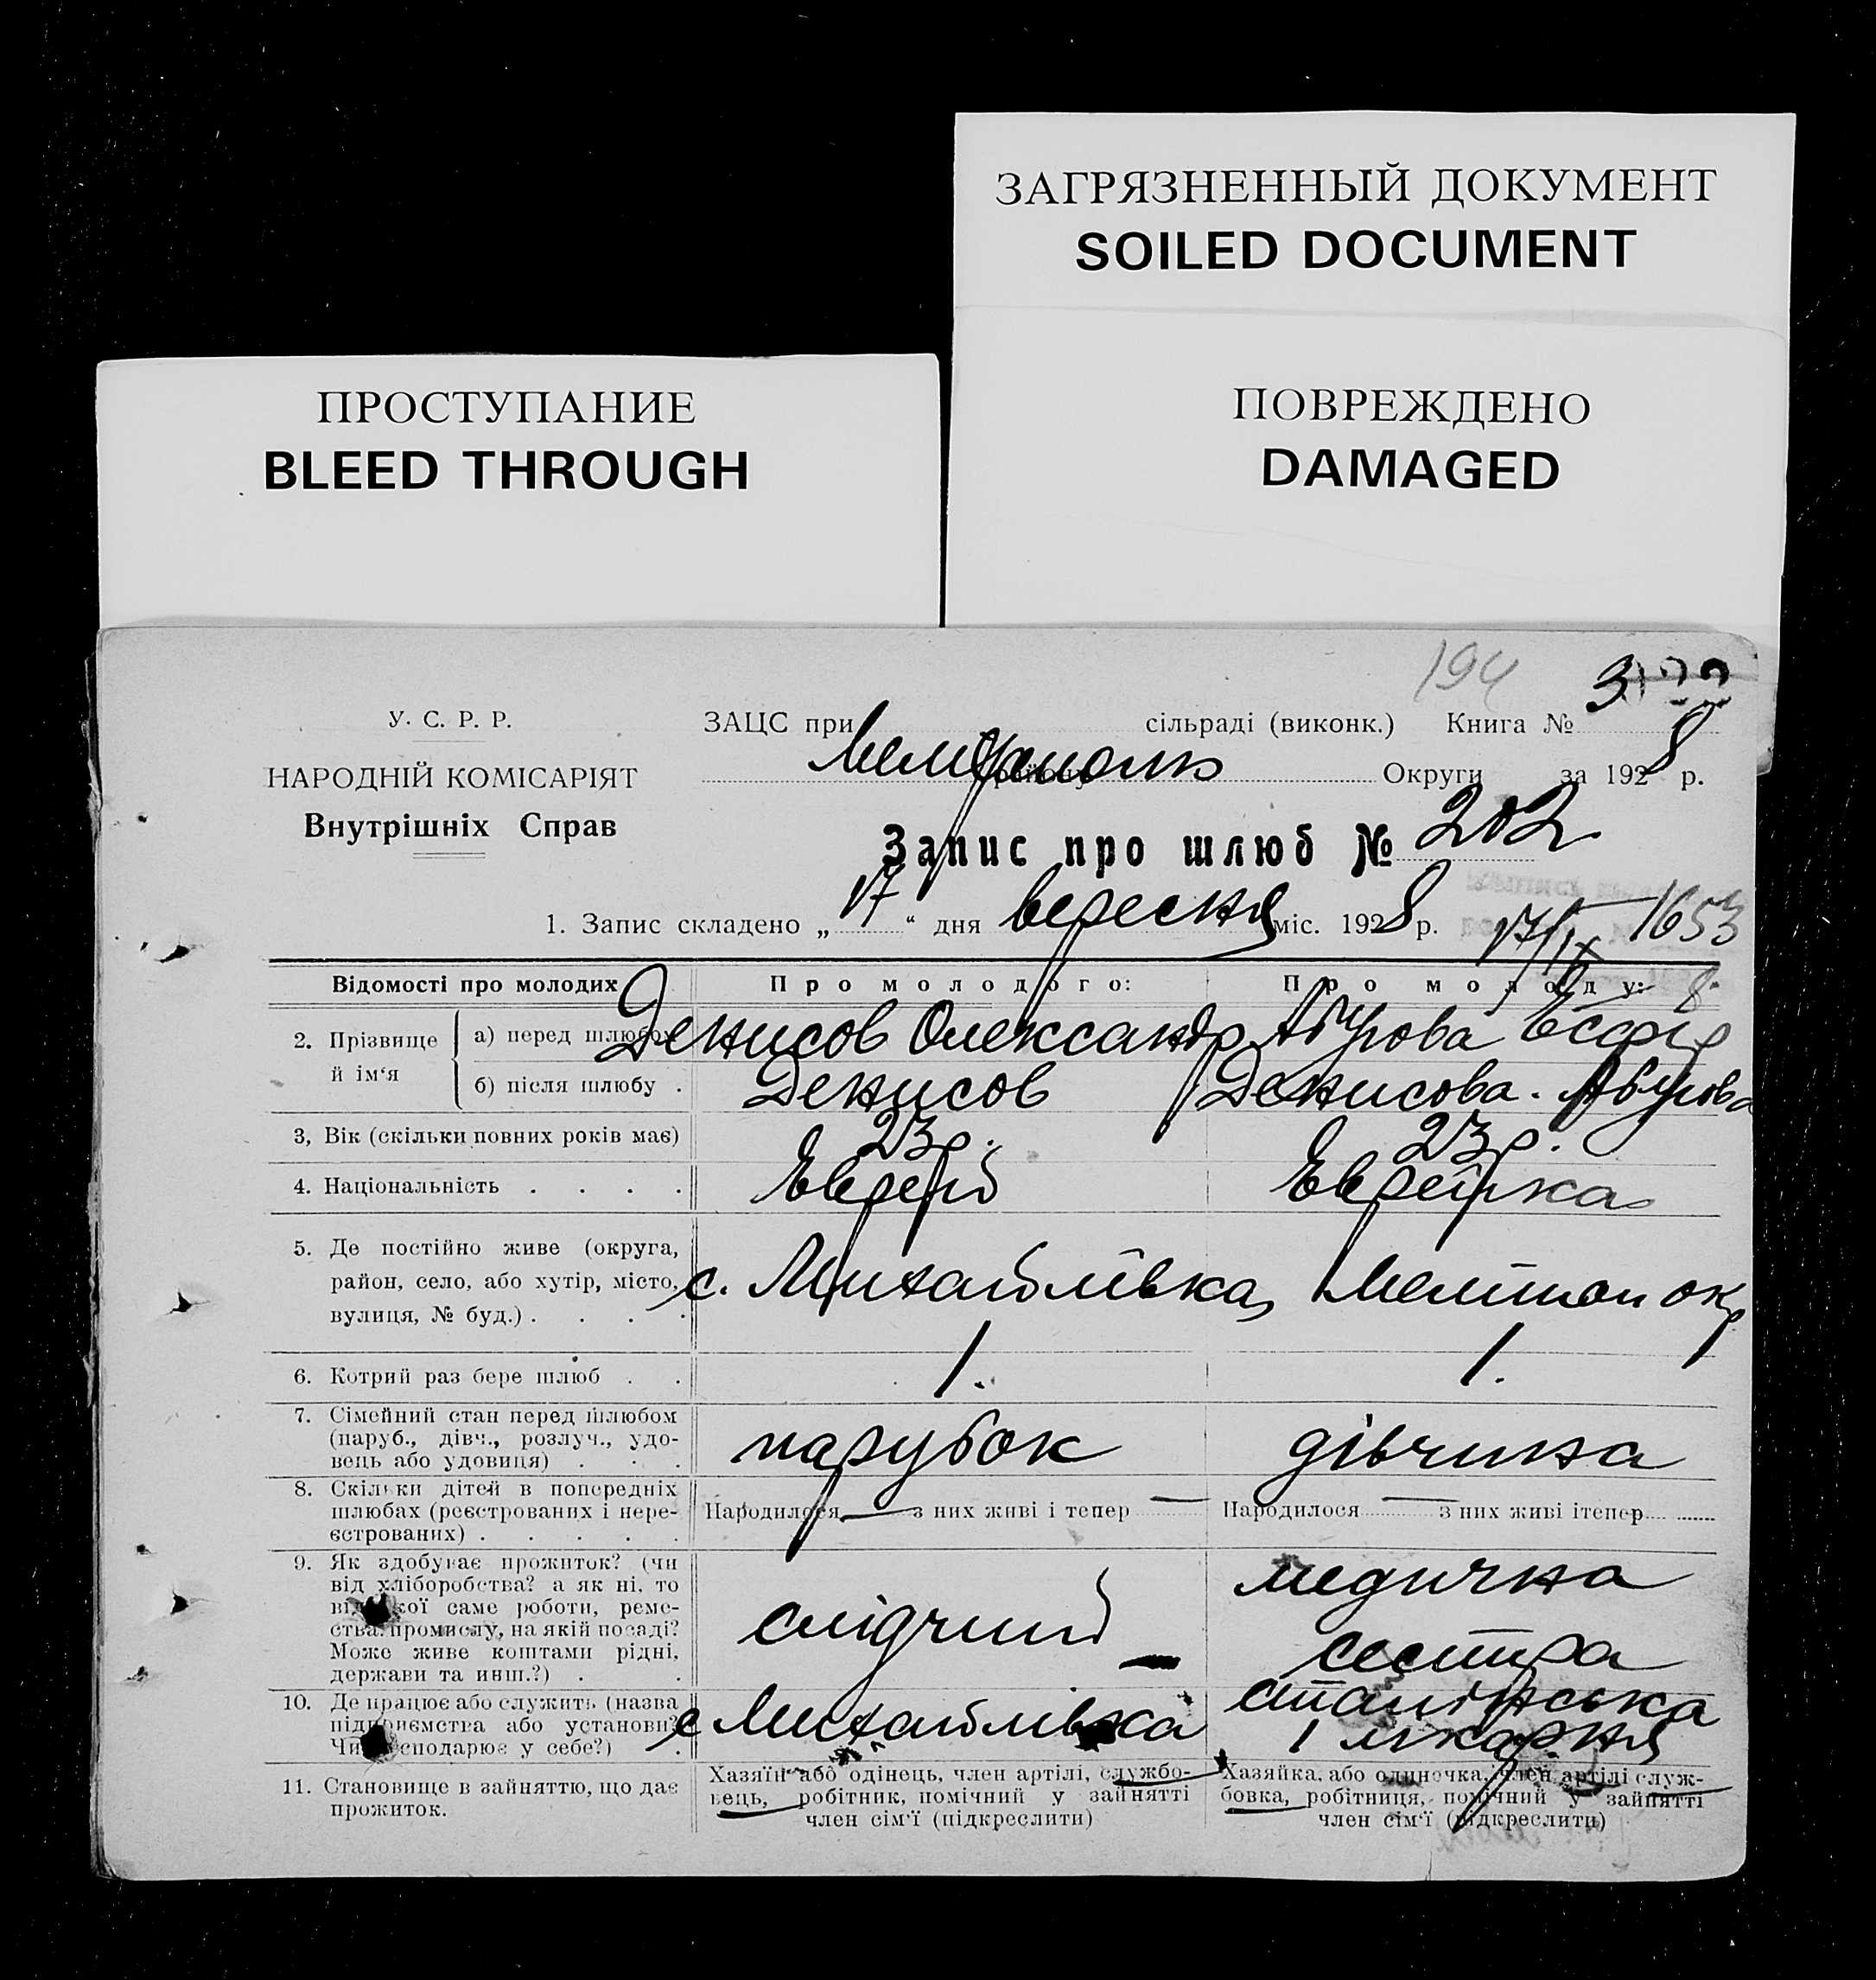 ЗАГРЯЗНЕННЫЙ ДОКУМЕНТ
SOILED DOCUMENT
ПРОСТУПАНИЕ
BLEED THROUGH
ПОВРЕЖДЕНО
DAMAGED
194
У. С. Р. Р.
НАРОДНІЙ КОМІСАРІЯТ
Внутрішніх Справ
ЗАЦС при сільраді (виконк.) Книга № 3
району Округи за 1928 р.
Запис про шлюб № 202
1. Запис складено „17“ дня вересня міс. 1928 р.
17/IX 1653
8.
Відомості про молодих
Про молодого:
Про молоду:
2. Прізвище й ім‘я
а) перед шлюбом Денисов Олександр Абурова Есфір
б) після шлюбу . Денисов Денисова. Абурова
3, Вік (скільки повних років має) 23 р. 23 р.
4. Національність . . . . Еврей Еврейка
5. Де постійно живе (округа,
район, село, або хутір, місто,
вулиця, № буд.) . . . .
с. Михайлівка, Мелітоп окр
6. Котрий раз бере шлюб . . 1. 1.
7. Сімейний стан перед шлюбом
(паруб., дівч., розлуч., удо-
вець або удовиця) . . .
парубок дівчина
8. Скільки дітей в попередніх
шлюбах (реєстрованих і нере-
єстрованих) . . . . .
Народилося — з них живі і тепер —
Народилося — з них живі ітепер
9. Як здобуває прожиток? (чи
від хліборобства? а як ні, то
від якої саме роботи, реме-
ства, промислу, на якій посаді?
Може живе коштами рідні,
держави та инш.?) . .
слідчий
медична
сестра
10. Де працює або служить (назва
підприємства або установи?
Чи господарює у себе?) .
с Михайлівка
1 лікарня
11. Становище в зайняттю, що дає
прожиток.
Хазяїн або одинець, член артілі, службо-
вець, робітник, помічний у зайнятті
член сім‘ї (підкреслити)
Хазяйка, або одиночка, член артілі служ-
бовка, робітниця, помічний у зайнятті
член сім‘ї (підкреслити)